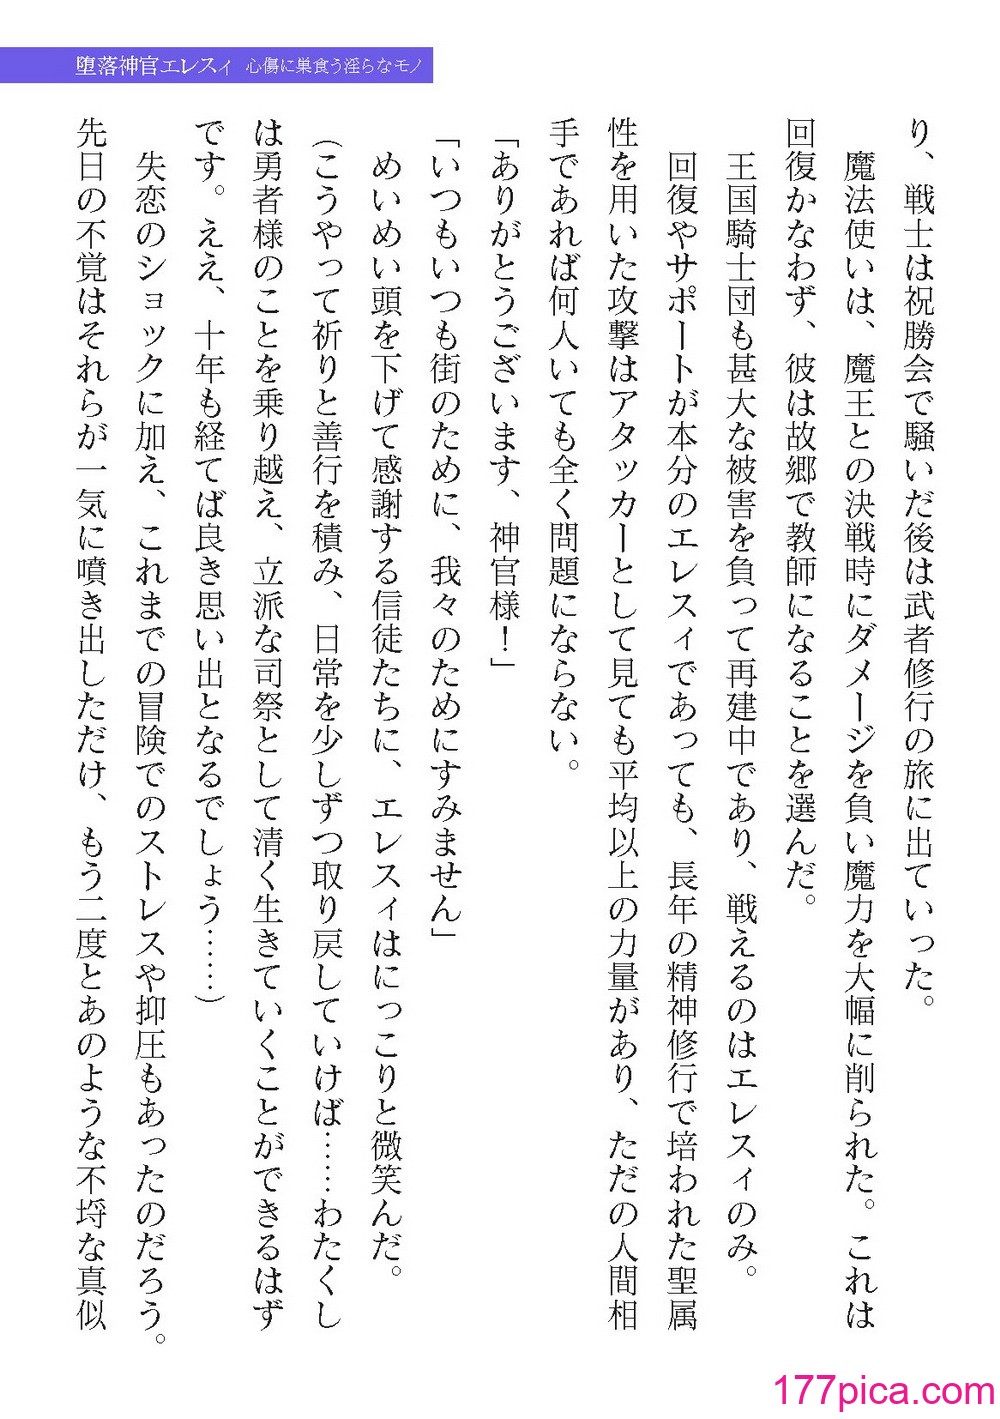 堕落神官エレスィ 心傷に巣食う淫らなモノ
り、戦士は祝勝会で騒いだ後は武者修行の旅に出ていった。
魔法使いは、魔王との決戦時にダメージを負い魔力を大幅に削られた。これは
回復かなわず、彼は故郷で教師になることを選んだ。
王国騎士団も甚大な被害を負って再建中であり、戦えるのはエレスィのみ。
回復やサポートが本分のエレスィであっても、長年の精神修行で培われた聖属
性を用いた攻撃はアタッカーとして見ても平均以上の力量があり、ただの人間相
手であれば何人いても全く問題にならない。
「ありがとうございます、神官様！」
「いつもいつも街のために、我々のためにすみません」
めいめい頭を下げて感謝する信徒たちに、エレスィはにっこりと微笑んだ。
（こうやって祈りと善行を積み、日常を少しずつ取り戻していけば……わたくし
は勇者様のことを乗り越え、立派な司祭として清く生きていくことができるはず
です。ええ、十年も経てば良き思い出となるでしょう……）
失恋のショックに加え、これまでの冒険でのストレスや抑圧もあったのだろう。
先日の不覚はそれらが一気に噴き出しただけ、もう二度とあのような不埒な真似
177pica.com